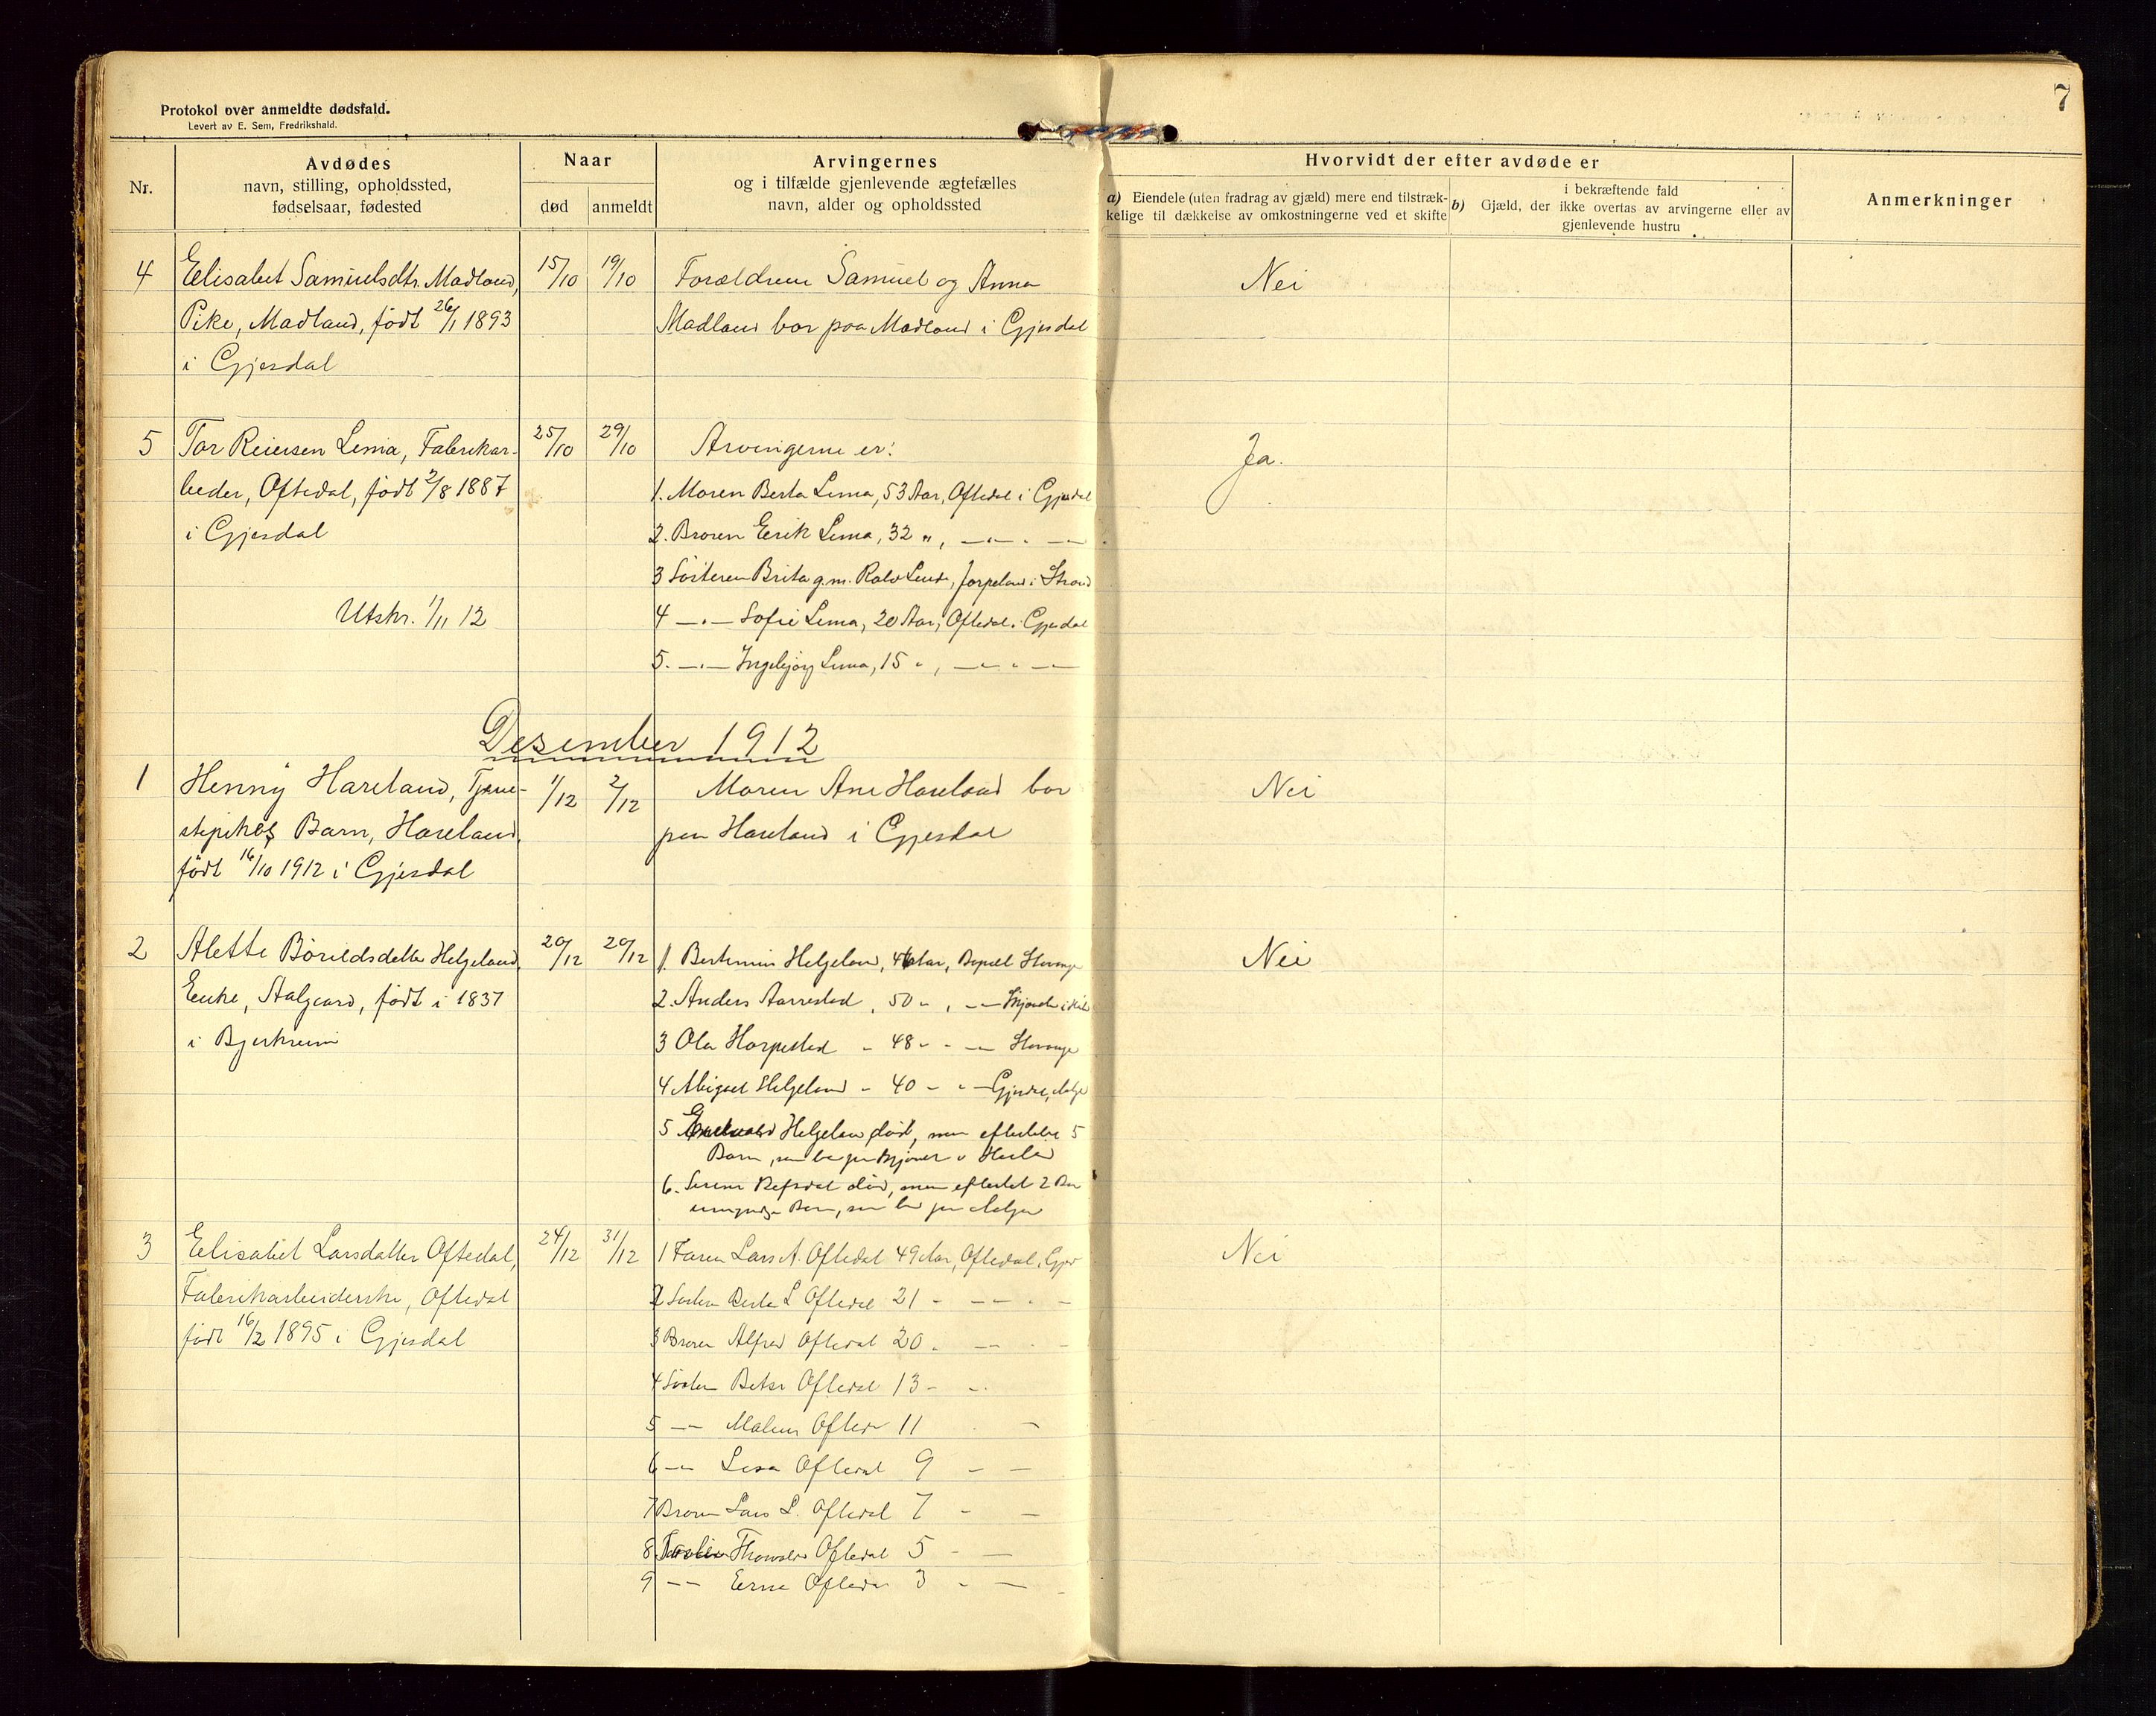 7
Protokol over anmeldte dødsfald.
Levert av E. Sem, Fredrikshald.
Nr.
Avdødes
navn, stilling, opholdssted,
fødselsaar, fødested
Naar
død
anmeldt
Arvingernes
og i tilfælde gjenlevende ægtefælles
navn, alder og opholdssted
Hvorvidt der efter avdøde er
a) Eiendele (uten fradrag av gjæld) mere end tilstræk-
kelige til dækkelse av omkostningerne ved et skifte
i bekræftende fald
b) Gjæld, der ikke overtas av arvingerne eller av
gjenlevende hustru
Anmerkninger
4
Elisabet Samuelsdtr. Madland,
Pike, Madland, født 26/1 1893
i Gjesdal
15/10
19/10
Forældrene Samuel og Anna
Madland bor paa Madland i Gjesdal
Nei
5
Tor Reiersen Lima, Fabrikar-
beider, Oftedal, født 2/8 1887
i Gjesdal
Utskr. 1/11 12
25/10
29/10
Arvingerne er:
1. Moren Berta Lima, 53 Aar, Oftedal i Gjesdal
2. Broren Eerik Lima, 32 „, —„— - —
3 Søsteren Brita g.m. Lende, Jørpeland i Strand
4 —„— Sofie Lima, 20 Aar, Oftedal i Gjesdal
5. —„— Ingebjørg Lima, 15 „, —„— —
Ja.
Desember 1912
1
Henny Hareland, Tjene-
stepikes Barn, Hareland,
født 16/10 1912 i Gjesdal
1/12
2/12
Moren Ane Hareland bor
paa Hareland i Gjesdal
Nei
2
Alette Bårildsdatter Helgeland,
Enke, Aalgaard, født i 1837
i Bjerkreim
20/12
20/12
1. Helgeland, Aar, Stavanger
2. Anders Aarrestad, 50 - , —
3 Ola Harpestad - 48 - - — Stavanger
4 Abigael Helgeland - 40 - - — Gjesdal,
5 Helgeland død, men efterladt 5
Barn, som bor paa
6. Serine Refsdal død, men efterladt 2
Barn, som bor paa
Nei
3
Elisabet Larsdatter Oftedal,
Fabrikarbeiderske, Oftedal
født 16/2 1895 i Gjesdal
24/12
31/12
1 Faren Lars A. Oftedal 49 Aar, Oftedal,
2 Søsteren Berta L Oftedal 21 - — - —
3 Broren Alfred Oftedal 20 - — - —
4 Søsteren Oftedal 13 - -
5 — Oftedal 11 -
6 — Lisa Oftedal 9 - —
7 Broren Lars L. Oftedal 7 - —
8 Oftedal 5 - —
9 — Oftedal 3 - —
Nei